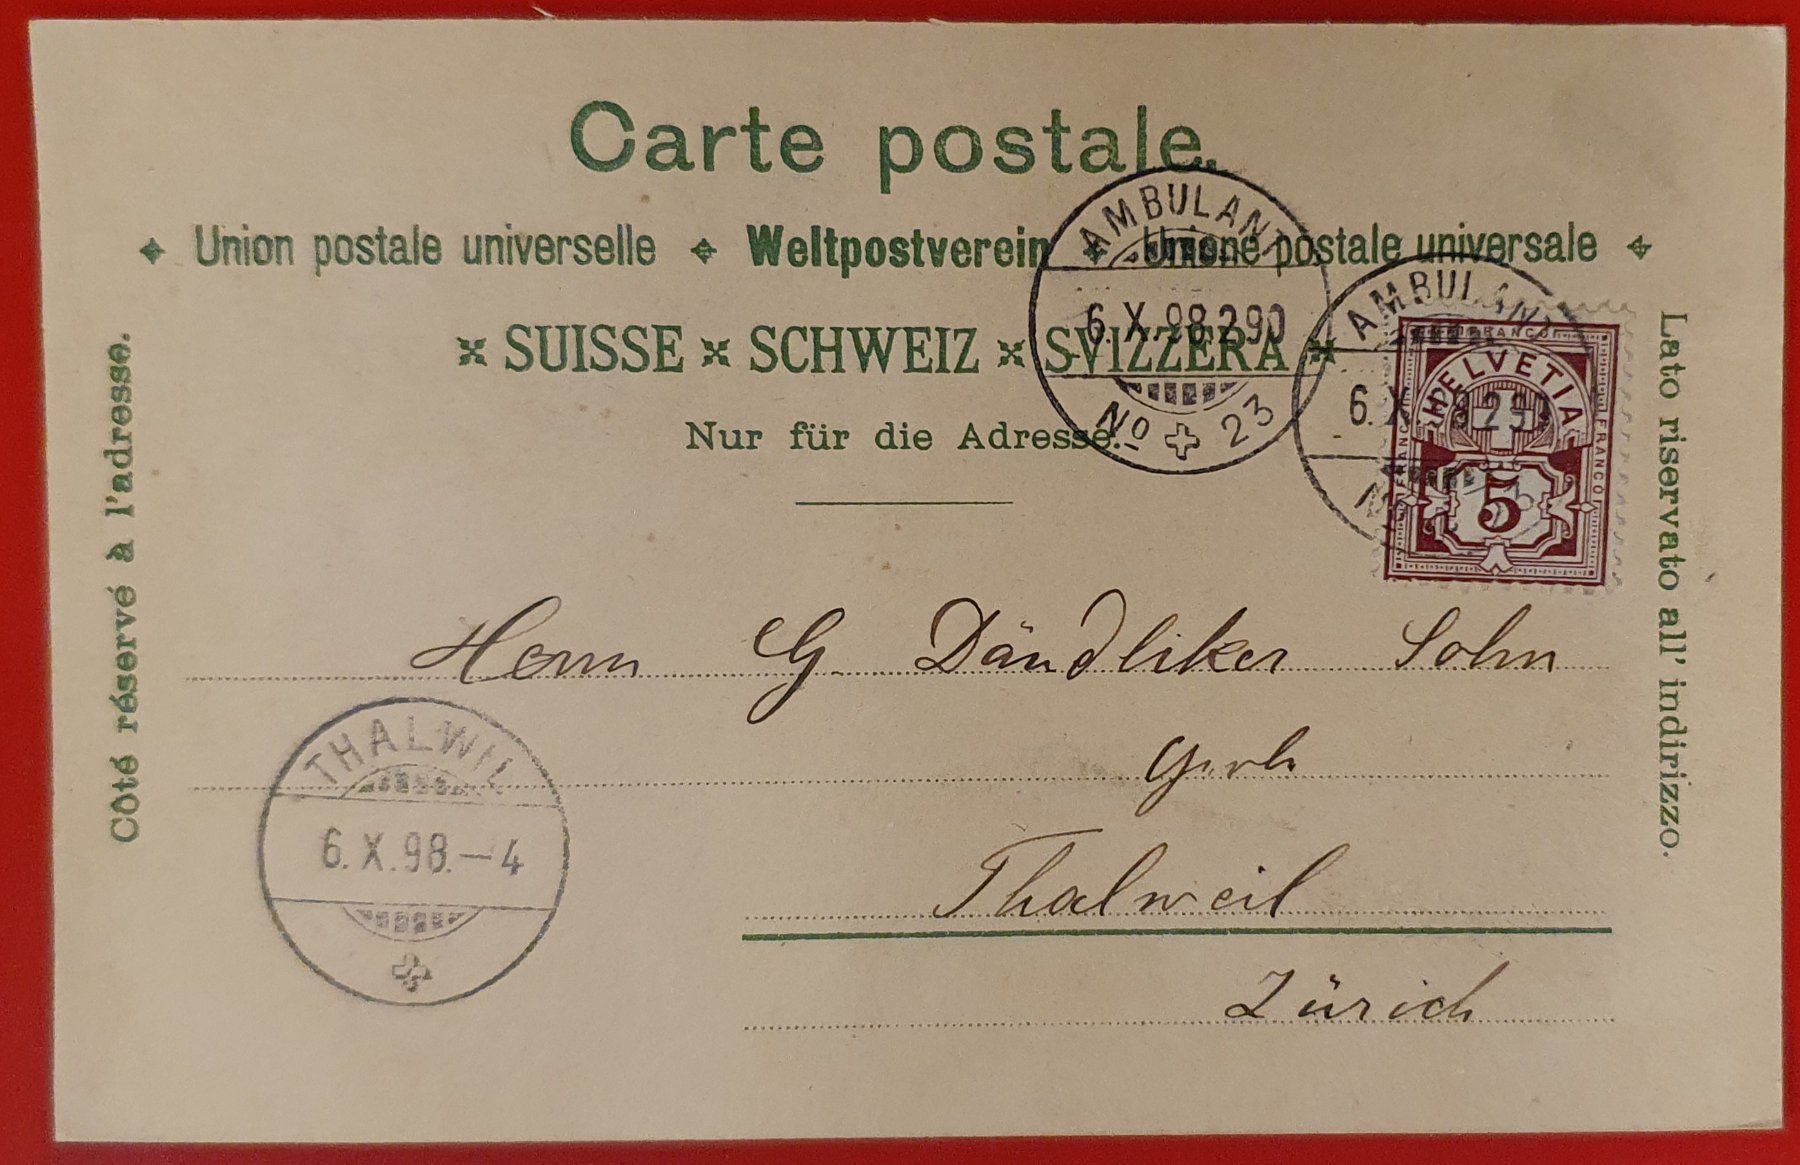 Carte postale.
Union postale universelle Weltpostverein Unione postale universale
SUISSE SCHWEIZ SVIZZERA
Nur für die Adresse.
Côté réservé à l'adresse.
Lato riservato all' indirizzo.
AMBULANT
6. X. 98 290
No 23
AMBULANT
6. X
FRANCO
HELVETIA
FRANCO
FRANCO
5
Herrn G. Dändliker Sohn
Thalweil
Zürich
THALWIL
6. X. 98. — 4